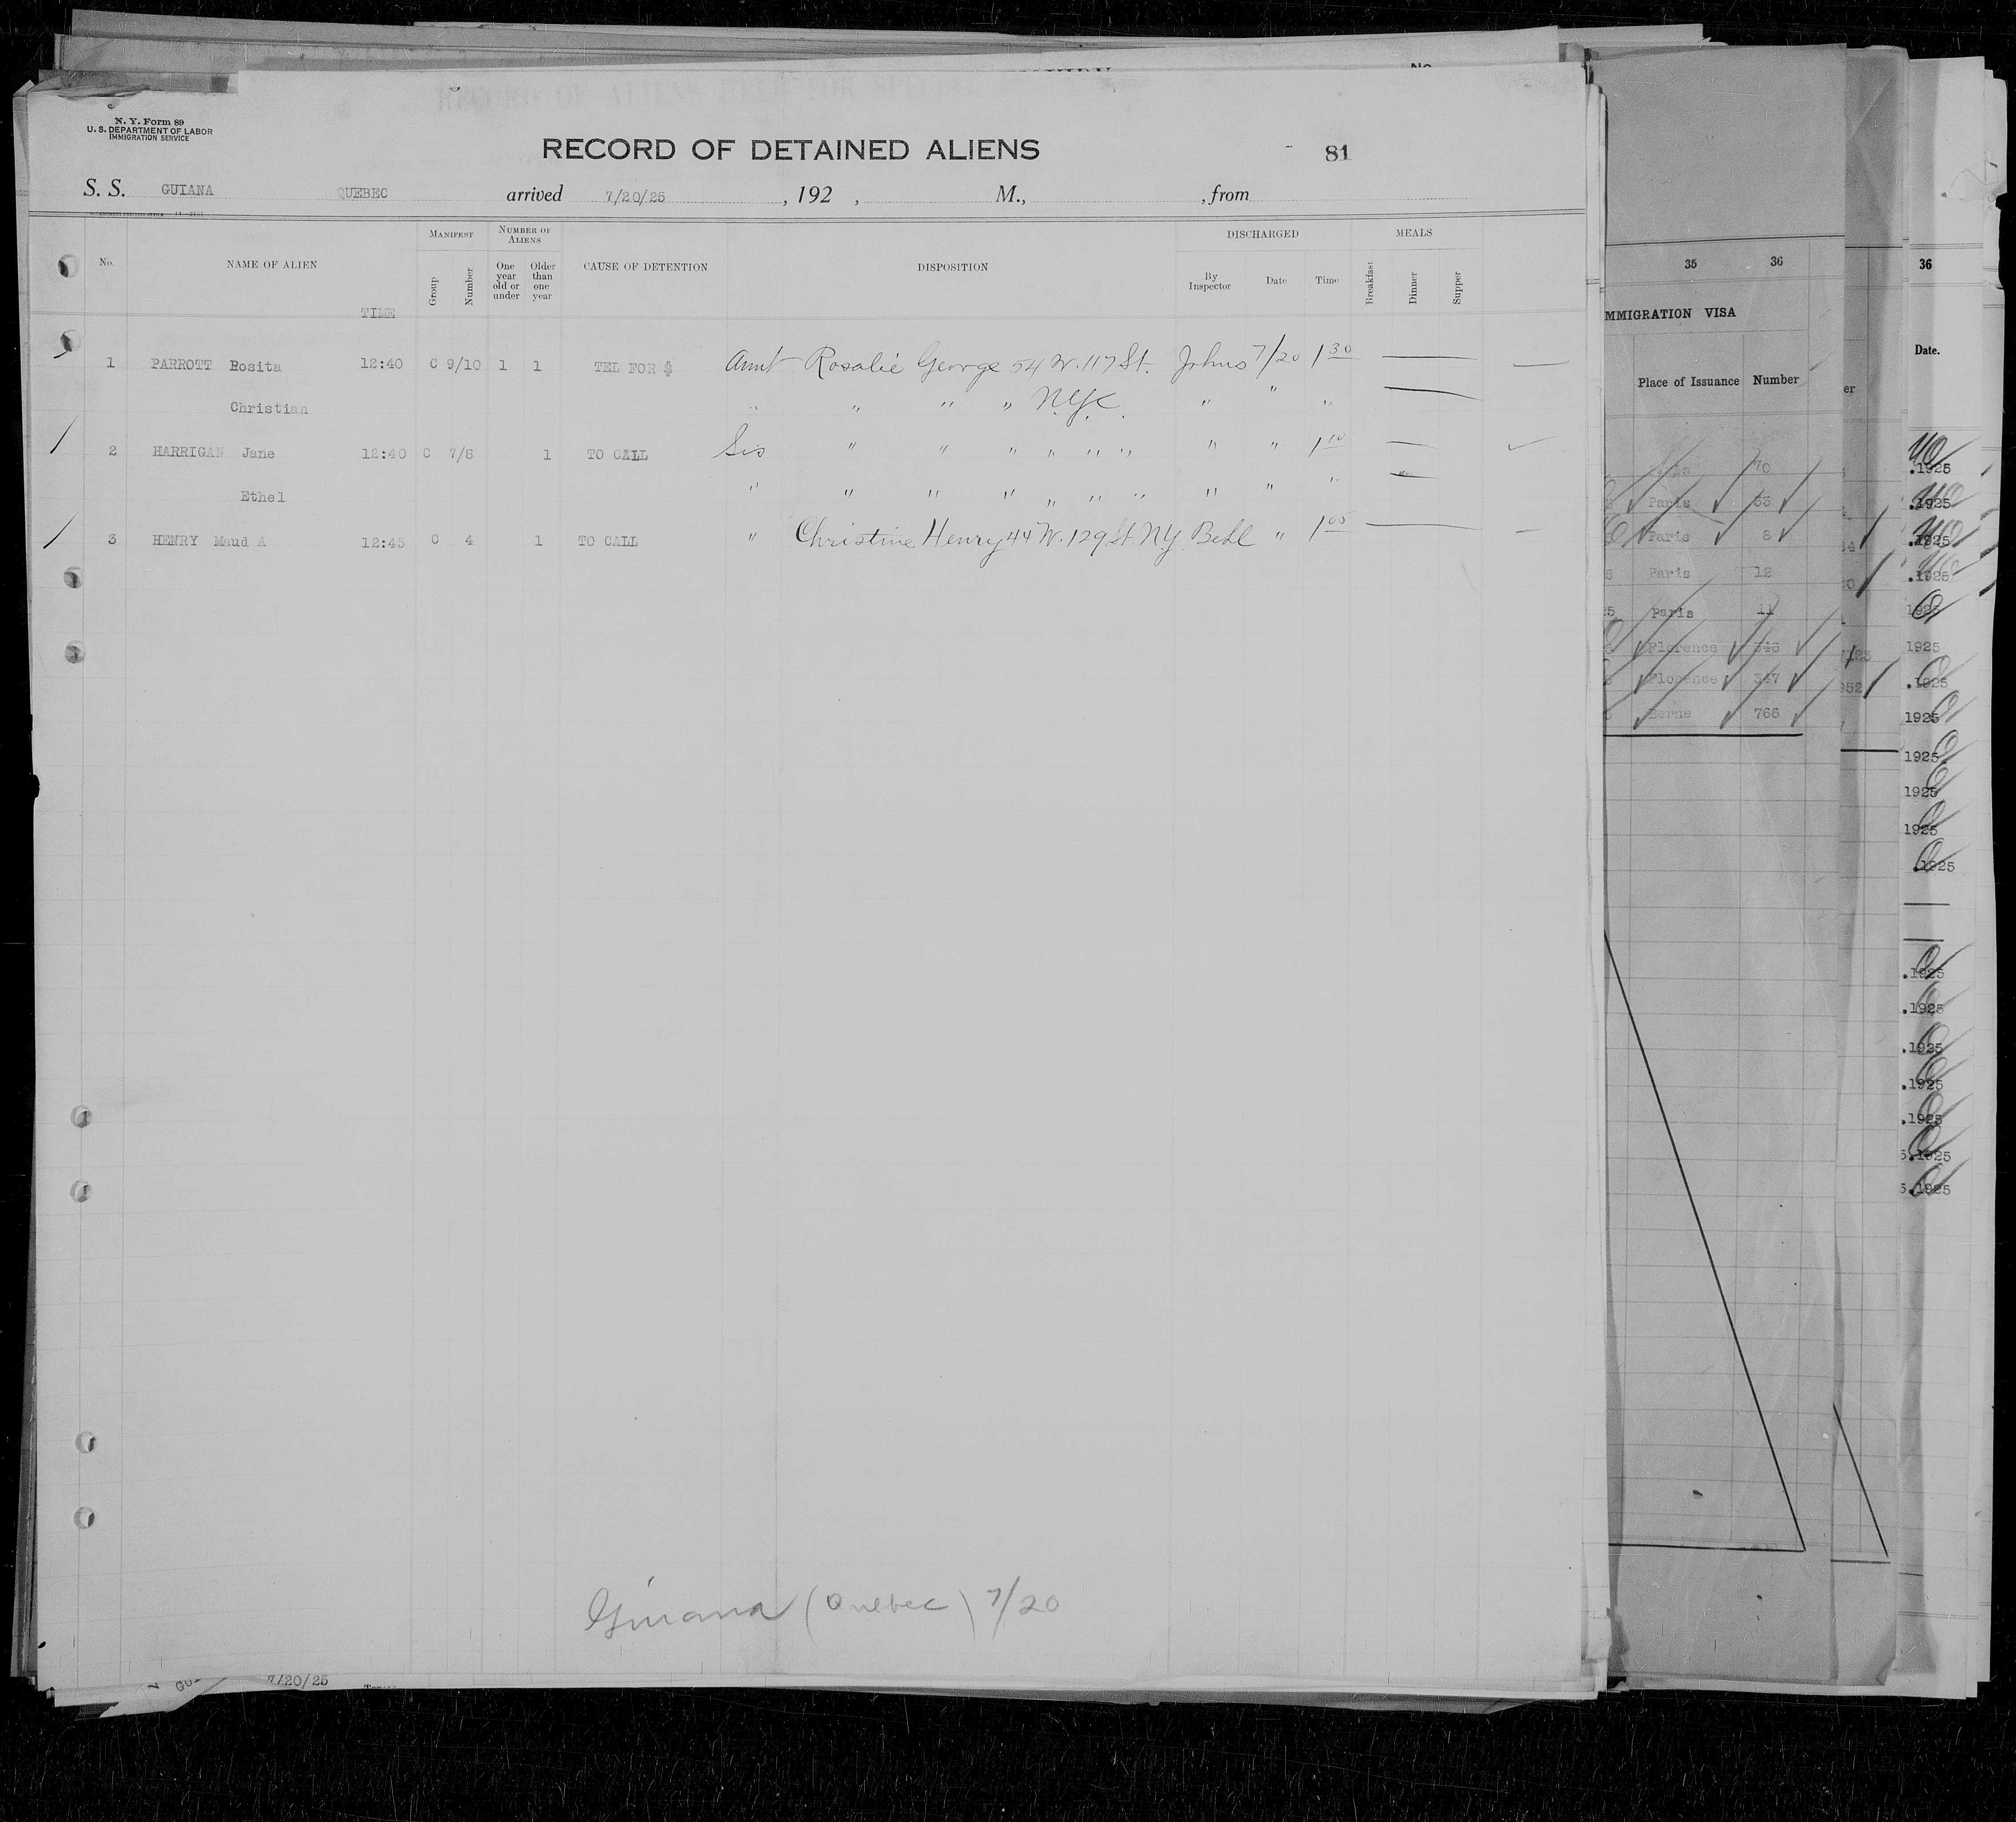 N. Y. Form 89
U. S. DEPARTMENT OF LABOR
IMMIGRATION SERVICE
RECORD OF DETAINED ALIENS 81
S. S. GUIANA QUEBEC arrived 7/20/25 , 192 , M., , from
No. NAME OF ALIEN TIME MANIFEST Group Number NUMBER OF ALIENS One year old or under Older than one year CAUSE OF DETENTION DISPOSITION DISCHARGED By Inspector Date Time MEALS Breakfast Dinner Supper
1 PARROTT Rosita 12:40 C 9/10 1 1 TEL FOR $ Aunt Rosalie George 54 W. 117 St. Johns 7/20 1 30
Christian " " " " N.Y.C. " " "
2 HARRIGAN Jane 12:40 C 7/8 1 TO CALL Sis " " " " " " " " 1 10
Ethel " " " " " " " " " "
3 HENRY Maud A 12:45 C 4 1 TO CALL " Christine Henry 44 W. 129 St N.Y. " 1 05
Guiana (Quebec) 7/20
7/20/25
35 36
MMIGRATION VISA
Place of Issuance Number
70
Paris 53
Paris 8
Paris 12
Paris 11
Florence 346
Florence 347
Berne 766
er
36
Date.
.1925
.1925
.1925
.1925
1925
1925
.1925
1925
1925.
1925
1925
.1925
.1925
.1925
.1925
.1925
.1925
5.1925
5.1925